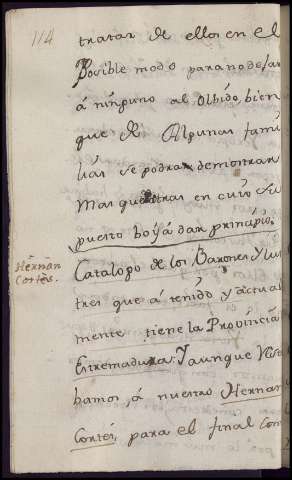 114
tratar de ellos en el
Posible modo para no dejar
á ninguno al Olbido, bien
que de Algunas fami
lias se podran demostrar
Mas que otras en cuio su
puesto boy á dar principio.
Catalogo de los Barones Ylus
tres que á tenido y actual
mente tiene la Provincia
Extremadura. Y aunque
bamos, á nuestro Hernan
Cortés, para el final con
Hernan
Cortés.